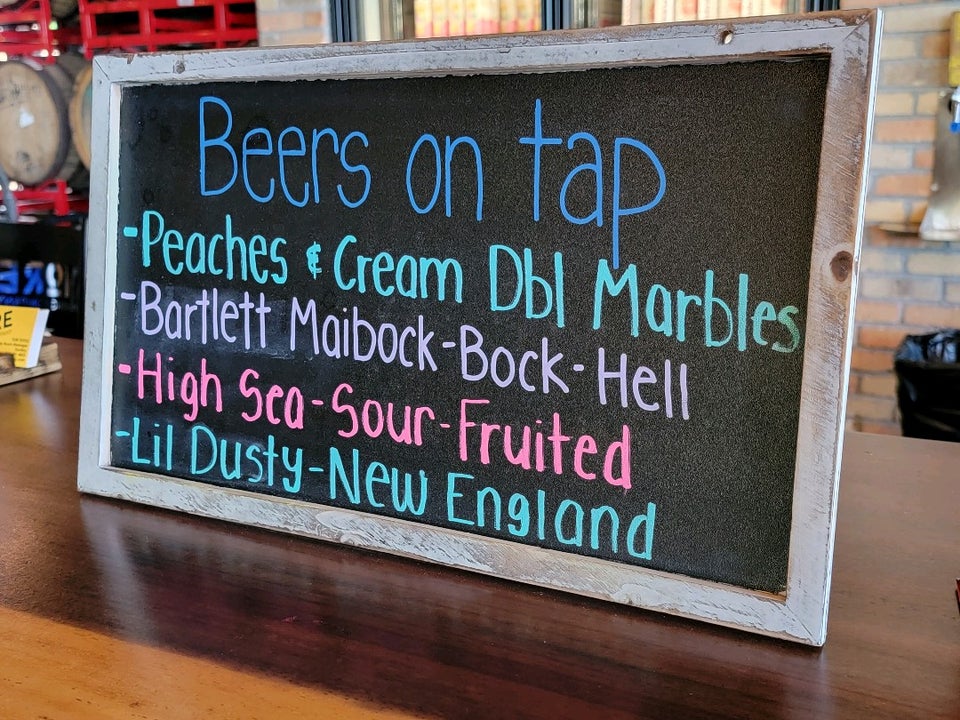 Beers on tap
-Peaches & Cream Dbl Marbles
-Bartlett Maibock-Bock-Hell
-High Sea-Sour-Fruited
-Lil Dusty-New England